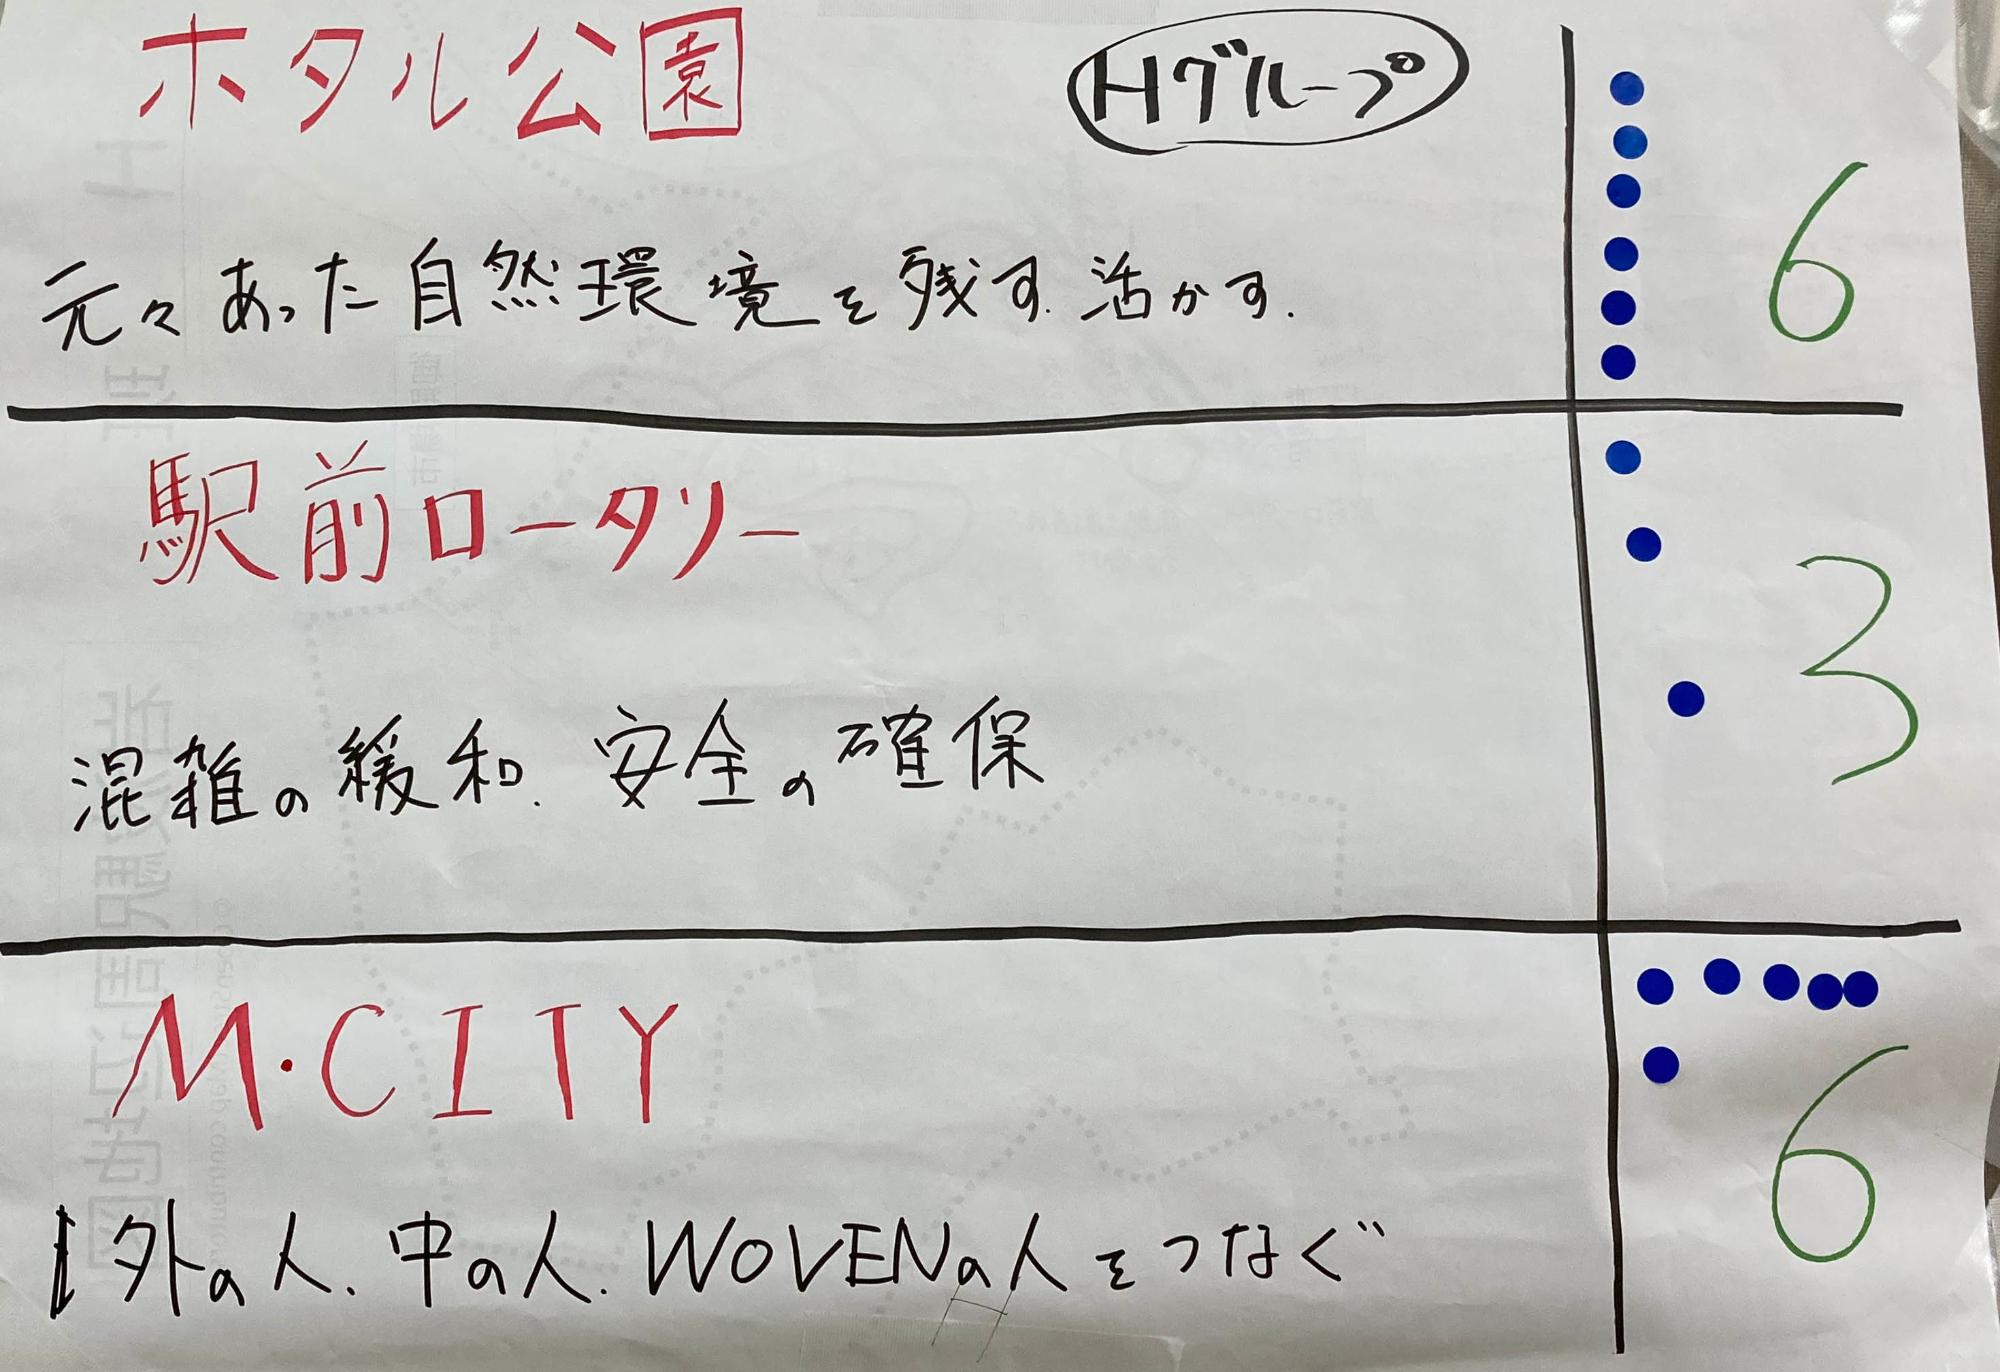 ホタル公園
Hグループ
6
元々あった自然環境を残す.活かす.
駅前ロータリー
3
混雑の緩和.安全の確保
M・CITY
6
外の人.中の人.WOVENの人をつなぐ